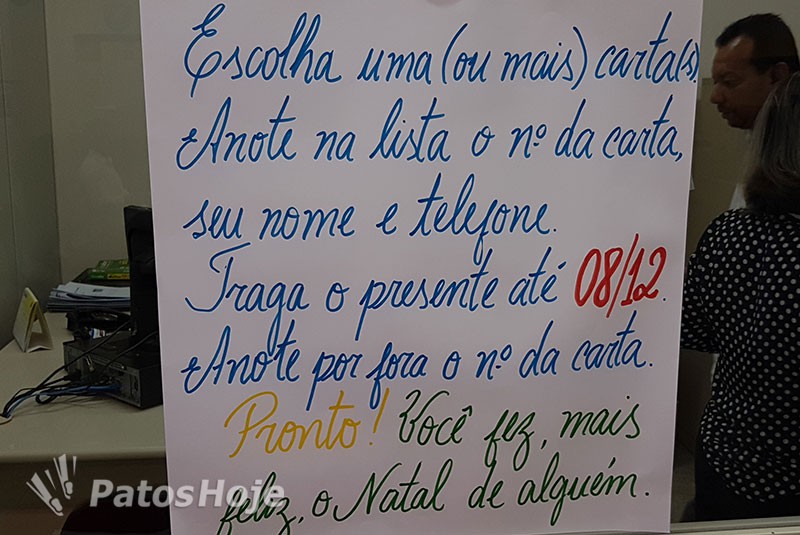 Escolha uma (ou mais) carta(s)
Anote na lista o nº da carta,
seu nome e telefone.
Traga o presente até 08/12.
Anote por fora o nº da carta.
Pronto! Você fez, mais
feliz, o Natal de alguém.
PatosHoje